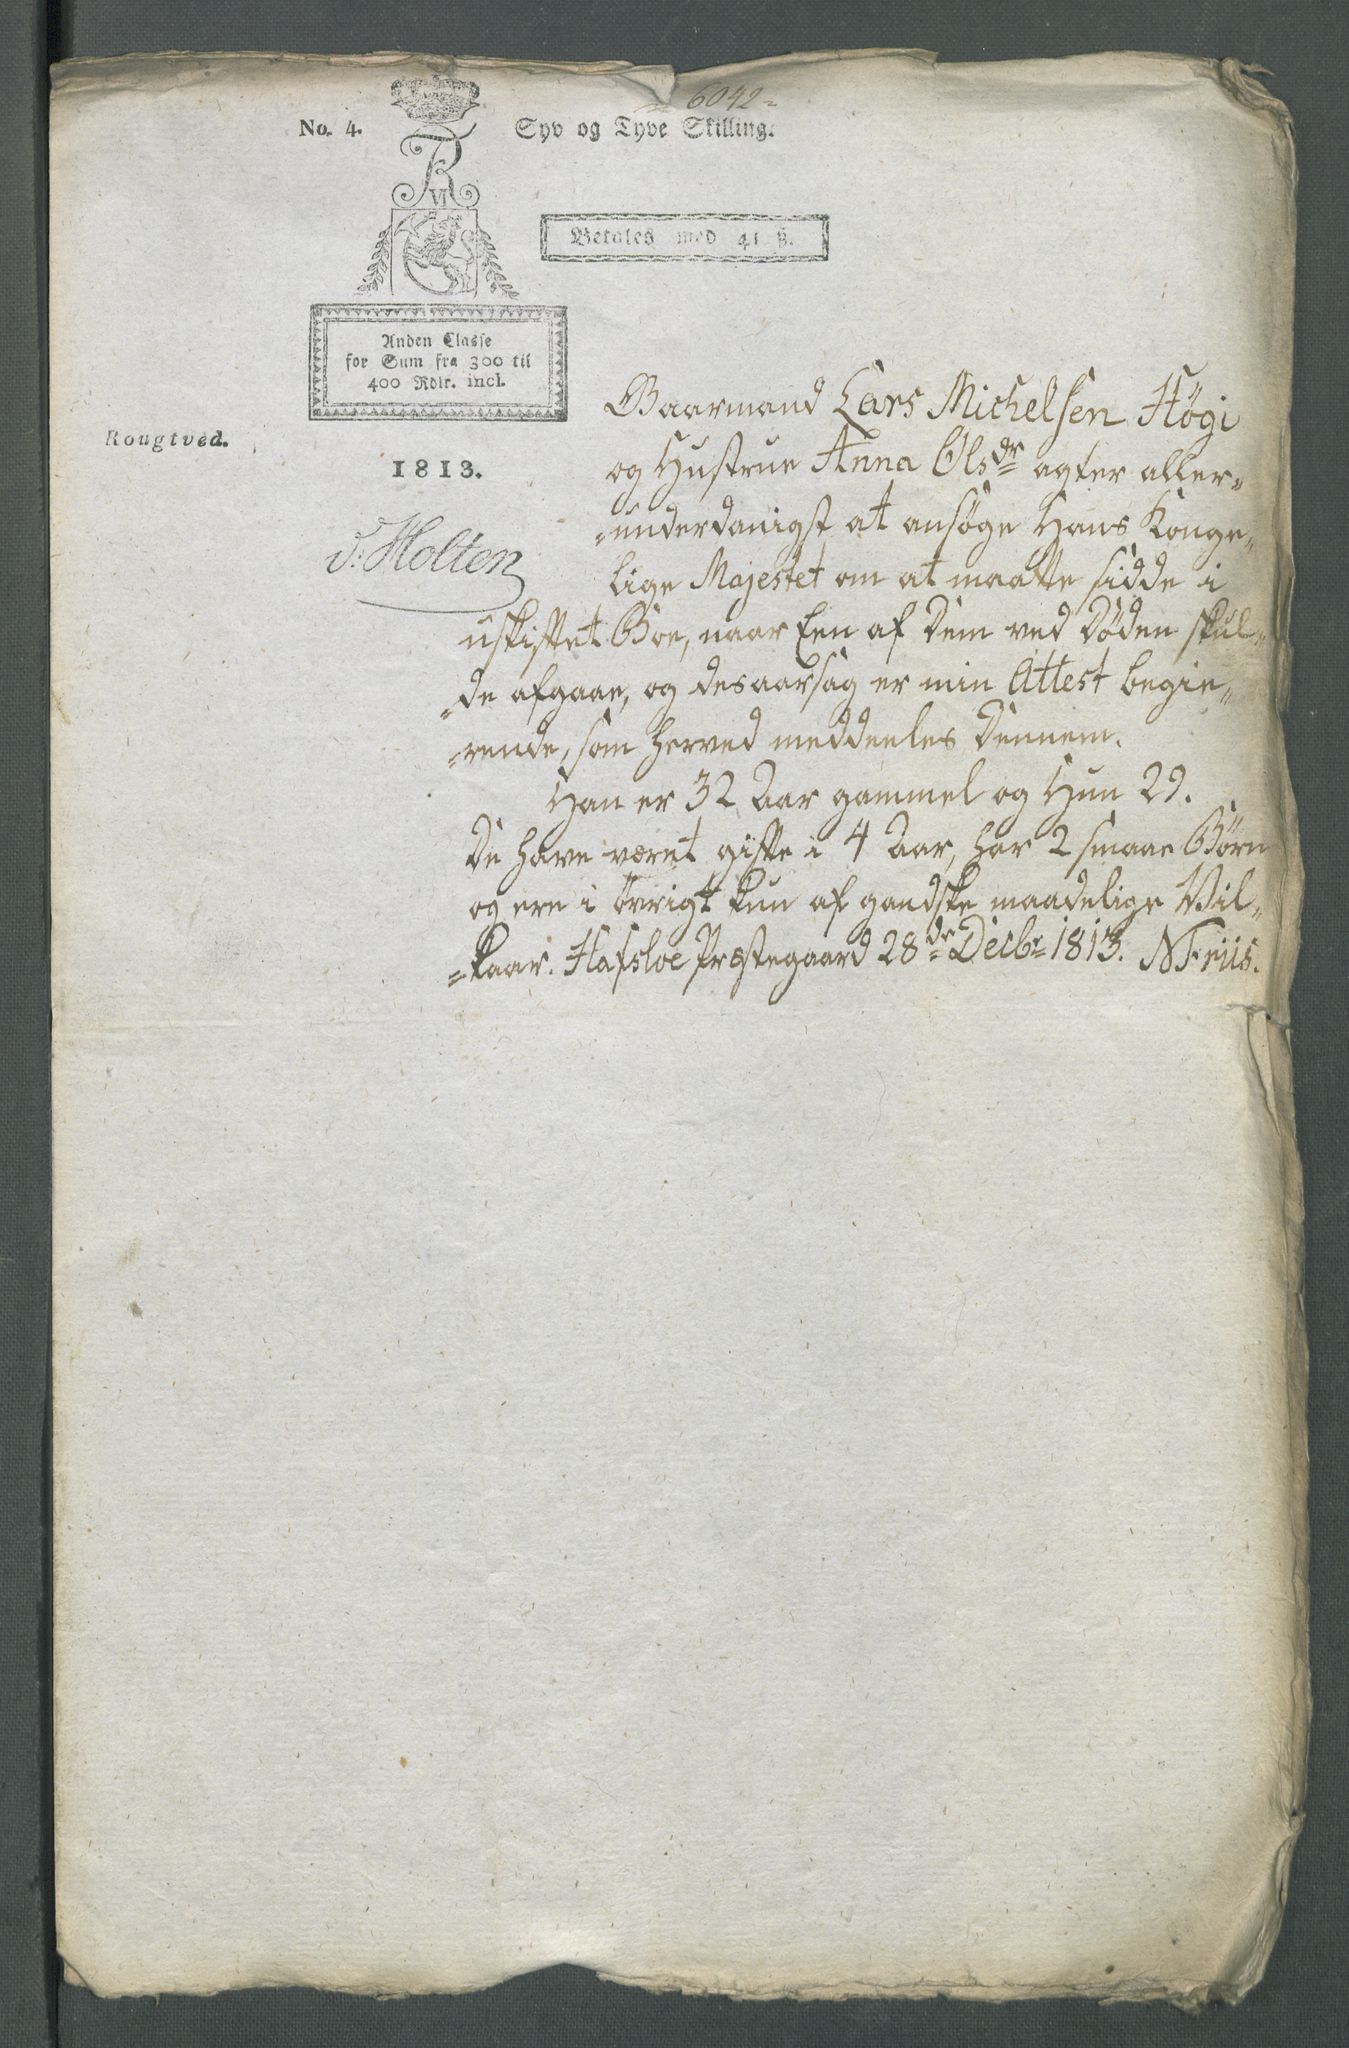 = 6042 =
No. 4. Syv og Tyve Skilling.
VI
Betales med 41 ß.
Anden Classe
for Sum fra 300 til
400 Rdlr. incl.
Rougtved.
1813.
v. Holten
Gaarmand Lars Michelsen Högi
og Hustrue Anna Olsdr agter aller-
-underdanigst at ansøge Hans Konge-
lige Majestet om at maatte sidde i
uskiftet Boe, naar Een af Dem ved Døden skul-
-de afgaae, og desaarsag er min Attest begie-
-rende, som herved meddeeles Dennem.
Han er 32 Aar gammel og Hun 29.
De have været gifte i 4 Aar, har 2 smaae Börn
og ere i övrigt kun af gandske maadelige Vil-
-kaar. Hafsloe Præstegaard 28de Decbr 1813. N Friis.